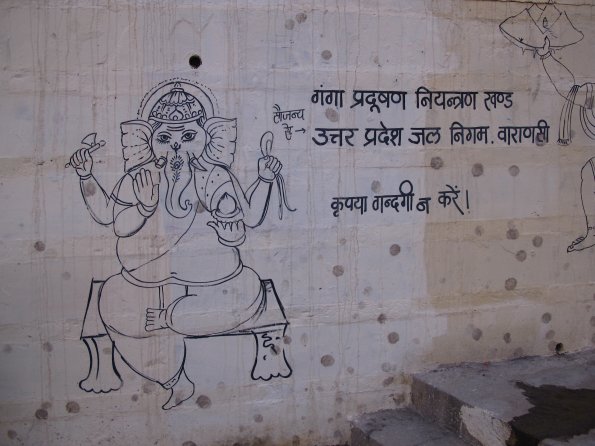 गंगा प्रदूषण नियन्त्रण खण्ड
सौजन्य
से → उत्तर प्रदेश जल निगम. वाराणसी
कृपया गन्दगी न करें!